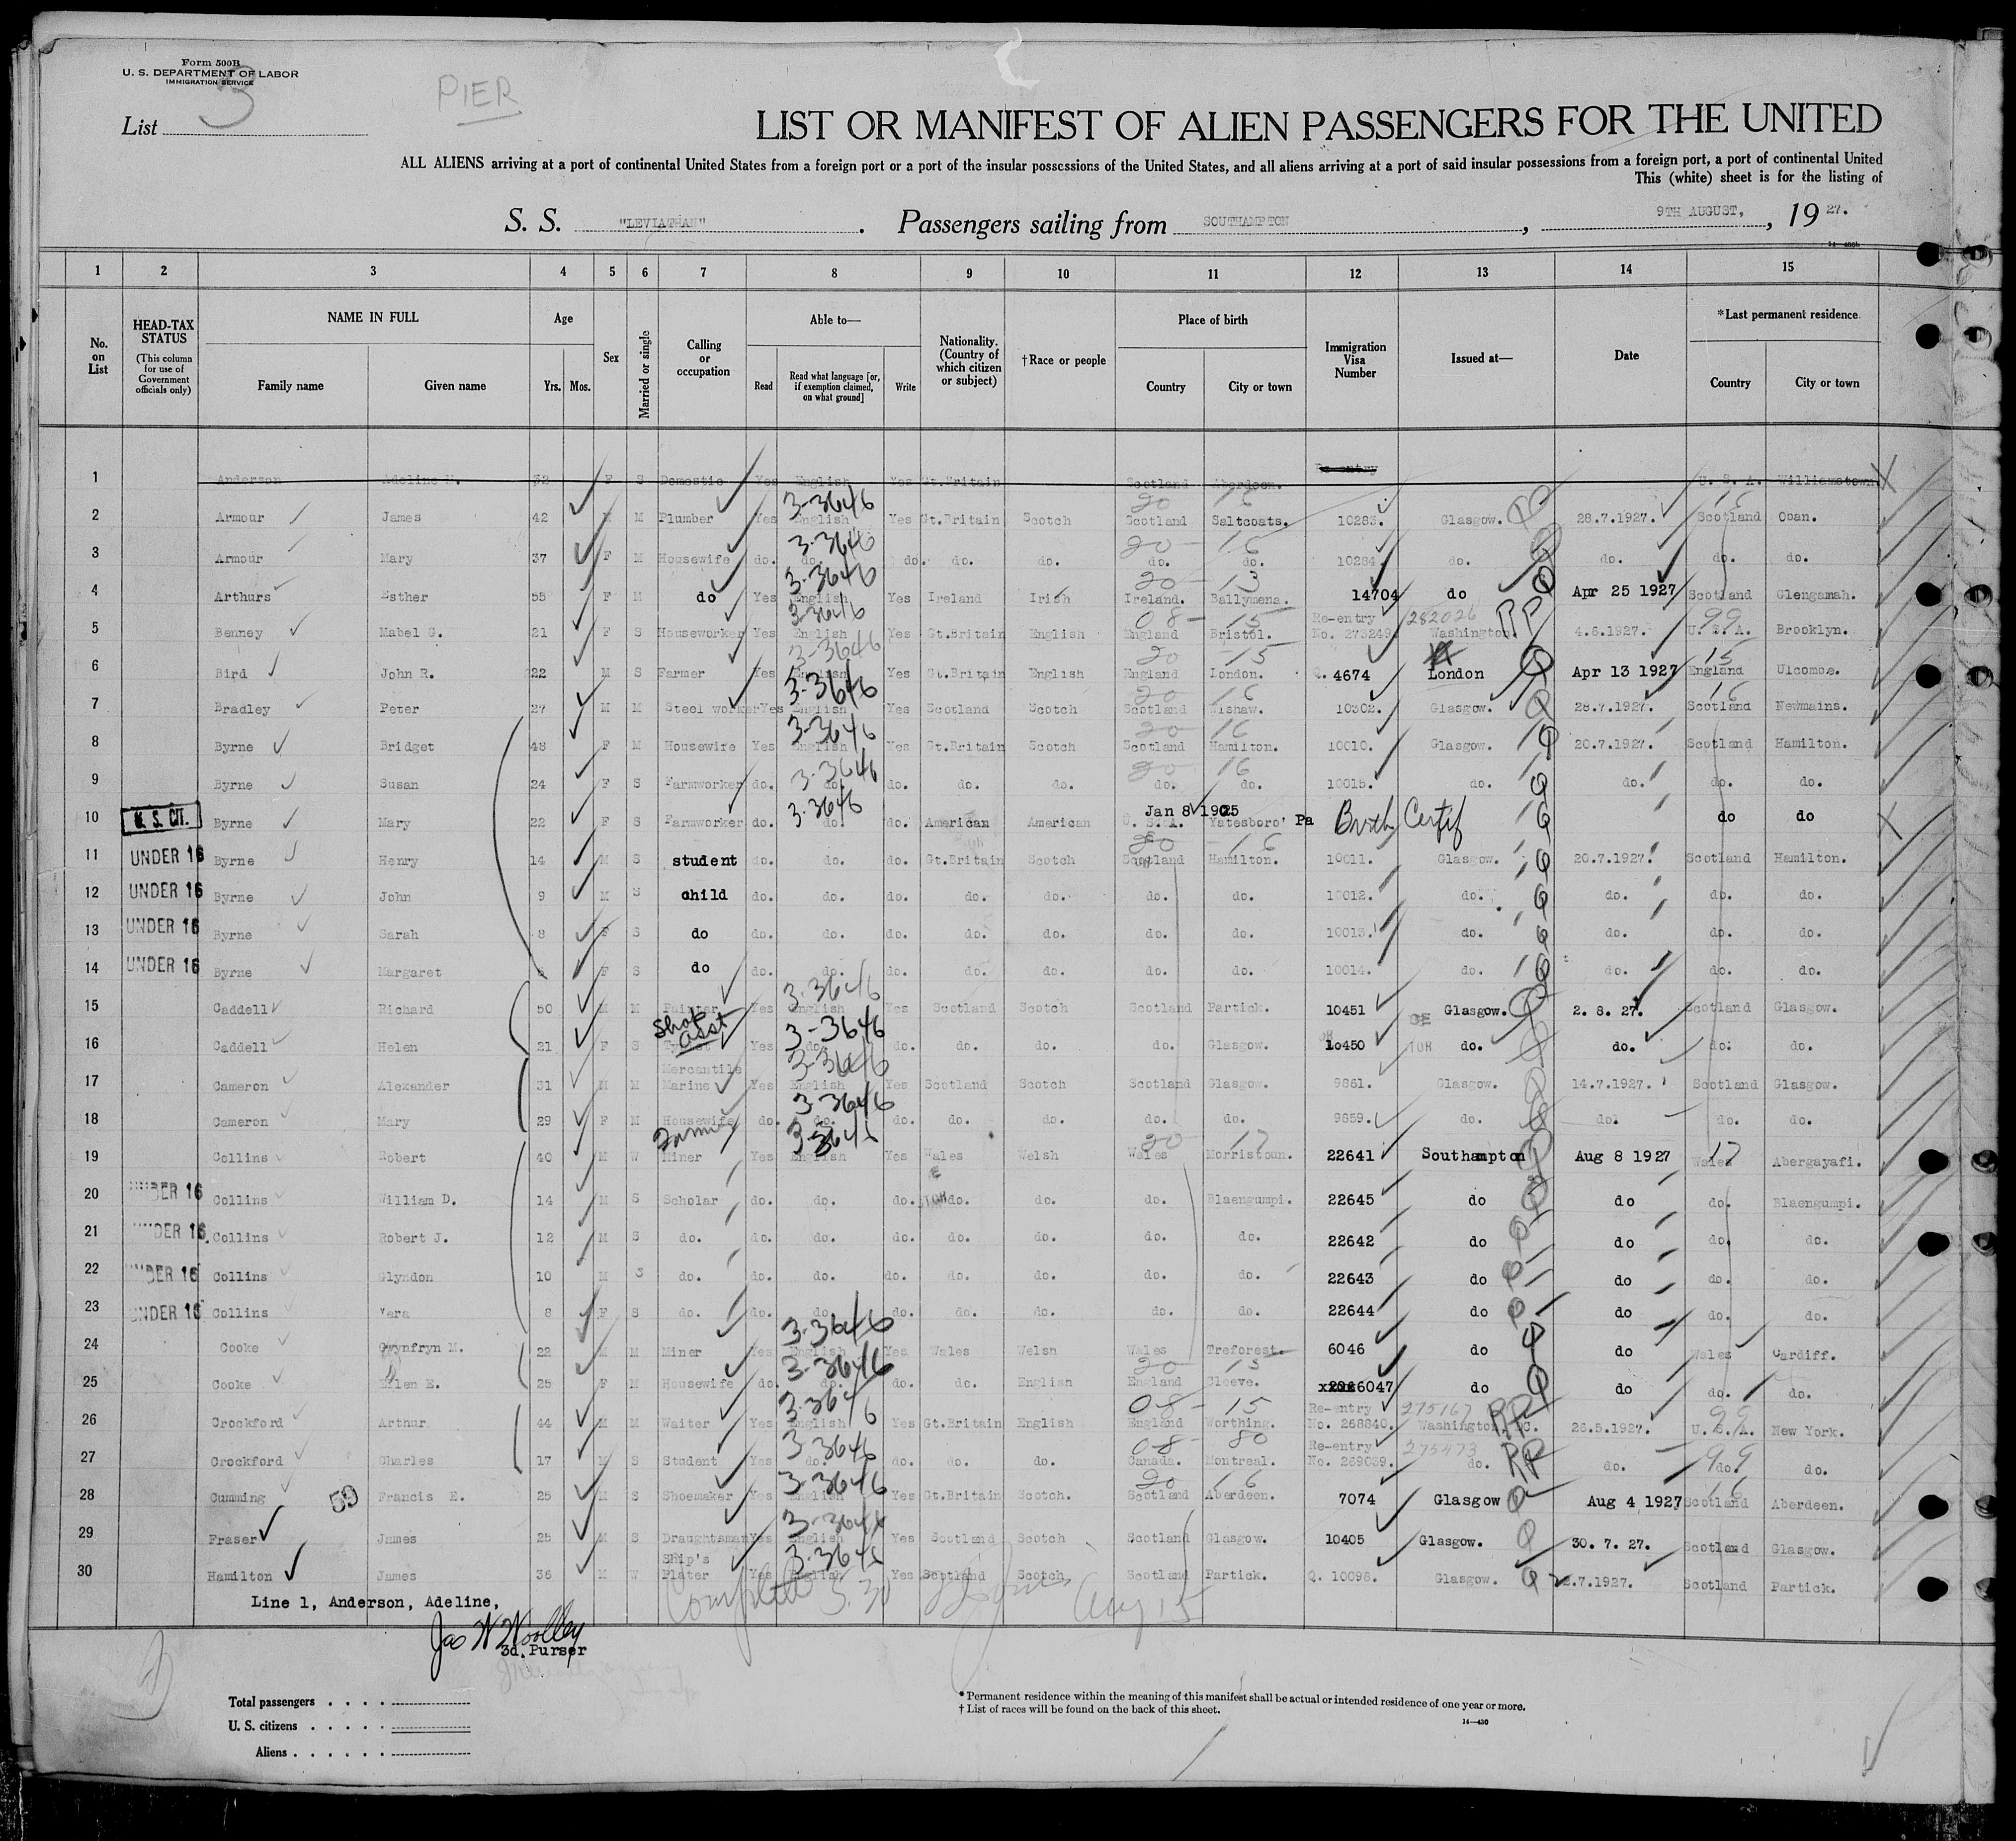 Form 500B
U. S. DEPARTMENT OF LABOR
IMMIGRATION SERVICE
List 3
PIER
LIST OR MANIFEST OF ALIEN PASSENGERS FOR THE UNITED
ALL ALIENS arriving at a port of continental United States from a foreign port or a port of the insular possessions of the United States, and all aliens arriving at a port of said insular possessions from a foreign port, a port of continental United
This (white) sheet is for the listing of
S. S. "LEVIATHAN" . Passengers sailing from SOUTHAMPTON , 9TH AUGUST, , 19 27.
1 2 3 4 5 6 7 8 9 10 11 12 13 14 15
No. on List
HEAD-TAX STATUS (This column for use of Government officials only)
NAME IN FULL Family name Given name
Age Yrs. Mos.
Sex
Married or single
Calling or occupation
Able to— Read Read what language [or, if exemption claimed, on what ground] Write
Nationality. (Country of which citizen or subject)
†Race or people
Place of birth Country City or town
Immigration Visa Number
Issued at—
Date
*Last permanent residence Country City or town
1 Anderson Adeline M. 32 F S Domestic Yes English Yes Gt.Britain Scotland Aberdeen. Re-entry U. S. A. Williamstown.
2 Armour James 42 M M Plumber Yes English 3-3646 Yes Gt.Britain Scotch Scotland Saltcoats. 10283. Glasgow. 28.7.1927. Scotland Oban.
3 Armour Mary 37 F M Housewife do. do. 3-3646 do. do. do. do. do. 10284. do. do. do. do.
4 Arthurs Esther 55 F M do Yes English 3-3646 Yes Ireland Irish Ireland. Ballymena. 14704 do Apr 25 1927 Scotland Glengamah.
5 Benney Mabel G. 21 F S Houseworker Yes English 3-3646 Yes Gt.Britain English England Bristol. Re-entry No. 273249 282026 Washington. 4.6.1927. U. S. A. Brooklyn.
6 Bird John R. 22 M S Farmer Yes English 3-3646 Yes Gt.Britain English England London. Q. 4674 London Apr 13 1927 England Ulcombe.
7 Bradley Peter 27 M M Steel worker Yes English 3-3646 Yes Scotland Scotch Scotland Wishaw. 10302. Glasgow. 28.7.1927. Scotland Newmains.
8 Byrne Bridget 48 F M Housewife Yes English 3-3646 Yes Gt.Britain Scotch Scotland Hamilton. 10010. Glasgow. 20.7.1927. Scotland Hamilton.
9 Byrne Susan 24 F S Farmworker do. do. 3-3646 do. do. do. do. do. 10015. do. do. do. do.
10 U. S. CIT. Byrne Mary 22 F S Farmworker do. do. 3-3646 do. American American Jan 8 1905 U. S. A. Yatesboro' Pa Birth Certif do do
11 UNDER 16 Byrne Henry 14 M S student do. do. do. Gt.Britain Scotch Scotland Hamilton. 10011. Glasgow. 20.7.1927. Scotland Hamilton.
12 UNDER 16 Byrne John 9 M S child do. do. do. do. do. do. do. 10012. do. do. do. do.
13 UNDER 16 Byrne Sarah 8 F S do do. do. do. do. do. do. do. 10013. do. do. do. do.
14 UNDER 16 Byrne Margaret F S do do. do. do. do. do. do. do. 10014. do. do. do. do.
15 Caddell Richard 50 M M Painter Yes English 3-3646 Yes Scotland Scotch Scotland Partick. 10451 Glasgow. 2. 8. 27. Scotland Glasgow.
16 Caddell Helen 21 F S Shop asst Yes do. 3-3646 do. do. do. do. Glasgow. 10450 do. do. do. do.
17 Cameron Alexander 31 M M Mercantile Marine Yes English 3-3646 Yes Scotland Scotch Scotland Glasgow. 9861. Glasgow. 14.7.1927. Scotland Glasgow.
18 Cameron Mary 29 F M Housewife do. do. 3-3646 do. do. do. do. do. 9859. do. do. do. do.
19 Collins Robert 40 M W Miner Yes English 3-3646 Yes Wales Welsh Wales Morristoun. 22641 Southampton Aug 8 1927 Wales Abergayafi.
20 UNDER 16 Collins William D. 14 M S Scholar do. do. do. do. do. do. Blaengumpi. 22645 do do do. Blaengumpi.
21 UNDER 16 Collins Robert J. 12 M S do. do. do. do. do. do. do. do. 22642 do do do. do.
22 UNDER 16 Collins Glyndon 10 M S do. do. do. do. do. do. do. do. 22643 do do do. do.
23 UNDER 16 Collins Vera 8 F S do. do. do. do. do. do. do. do. 22644 do do do. do.
24 Cooke Gwynfryn M. 22 M M Miner Yes English 3-3646 Yes Wales Welsh Wales Treforest. 6046 do do Wales Cardiff.
25 Cooke Ellen E. 25 F M Housewife do. do. 3-3646 do. do. English England Cleeve. 6047 do do do. do.
26 Crockford Arthur. 44 M M Waiter Yes English 3-3646 Yes Gt.Britain English England Worthing. Re-entry No. 268840. 275167 Washington, DC. 26.5.1927. U. S. A. New York.
27 Crockford Charles 17 M S Student Yes do. 3-3646 do. do. do. Canada. Montreal. Re-entry No. 269039. 275473 do. do. do. do.
28 Cumming 59 Francis E. 25 M S Shoemaker Yes English 3-3646 Yes Gt.Britain Scotch. Scotland Aberdeen. 7074 Glasgow Aug 4 1927 Scotland Aberdeen.
29 Fraser James 25 M S Draughtsman Yes English 3-3646 Yes Scotland Scotch Scotland Glasgow. 10405 Glasgow. 30. 7. 27. Scotland Glasgow.
30 Hamilton James 36 M W Ship's Plater Yes English 3-3646 Yes Scotland Scotch Scotland Partick. Q. 10098. Glasgow. 2.7.1927. Scotland Partick.
Line 1, Anderson, Adeline,
Complete 3.30 Aug 15
Jas W Woolley
3d. Purser
Total passengers . . . .
U. S. citizens . . . . .
Aliens . . . . . .
* Permanent residence within the meaning of this manifest shall be actual or intended residence of one year or more.
† List of races will be found on the back of this sheet.
14—430